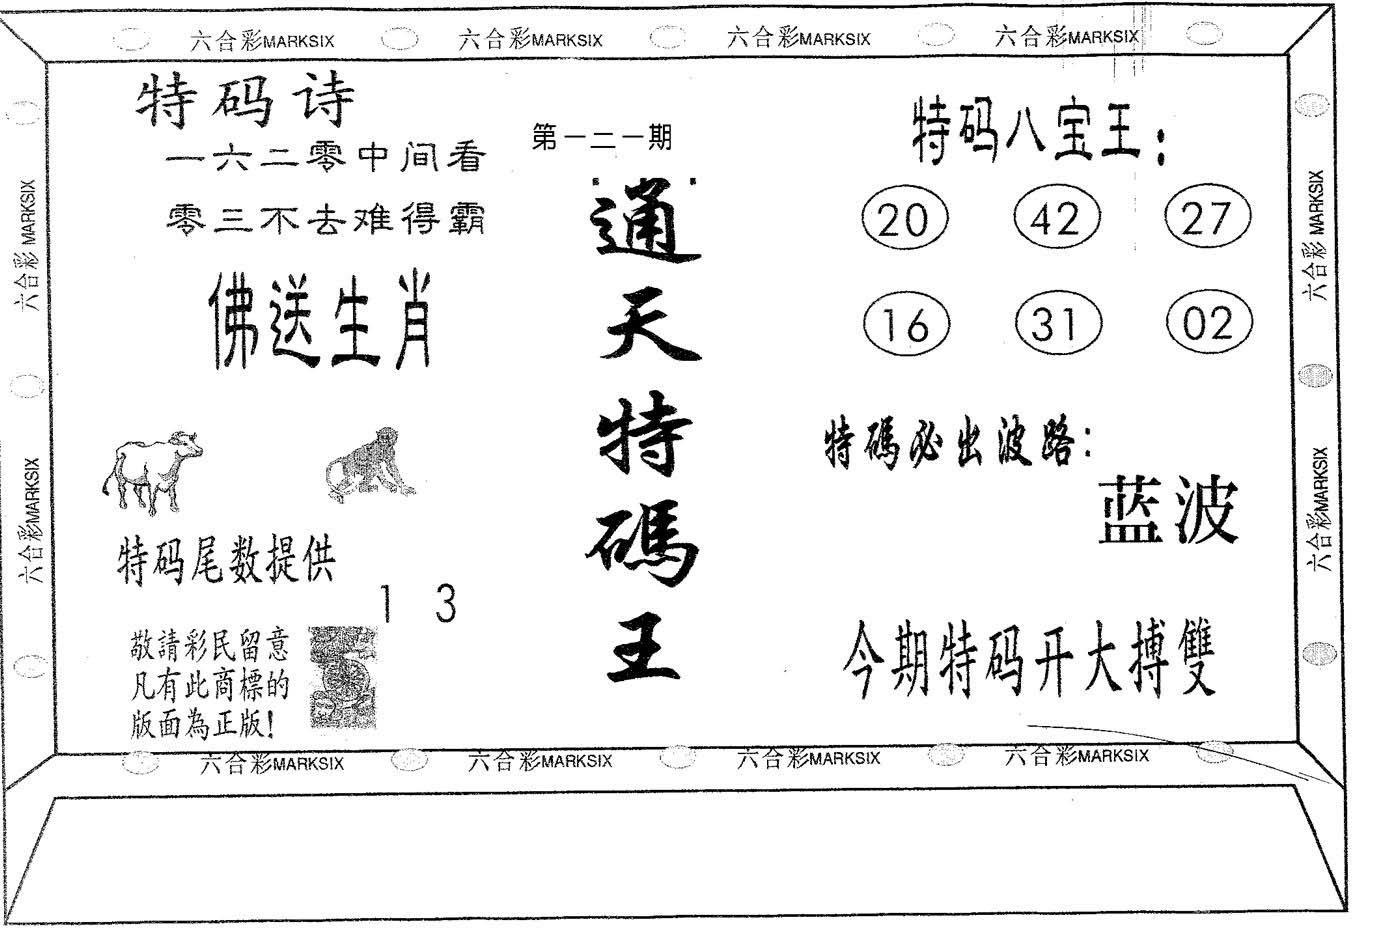 六合彩MARKSIX 六合彩MARKSIX 六合彩MARKSIX 六合彩MARKSIX
特码诗
一六二零中间看
零三不去难得霸
佛送生肖
特码尾数提供
1 3
敬請彩民留意
凡有此商標的
版面為正版!
第一二一期
通天特碼王
特码八宝王:
20 42 27
16 31 02
特碼必出波路:
蓝波
今期特码开大搏雙
六合彩MARKSIX
六合彩MARKSIX
六合彩MARKSIX
六合彩MARKSIX
六合彩MARKSIX 六合彩MARKSIX 六合彩MARKSIX 六合彩MARKSIX